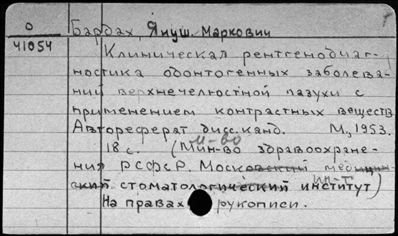 0
41054
Бардах, Януш Маркович
Клиническая рентгенодиаг-
ностика одонтогенных заболева-
ний верхнечелюстной пазухи с
применением контрастных веществ
Автореферат дисс. канд. М., 1953.
18 с. (Мин-во здравоохране-
ния РСФСР. Московский медицин-
ский стоматологический институт)
ин-т
На правах рукописи.